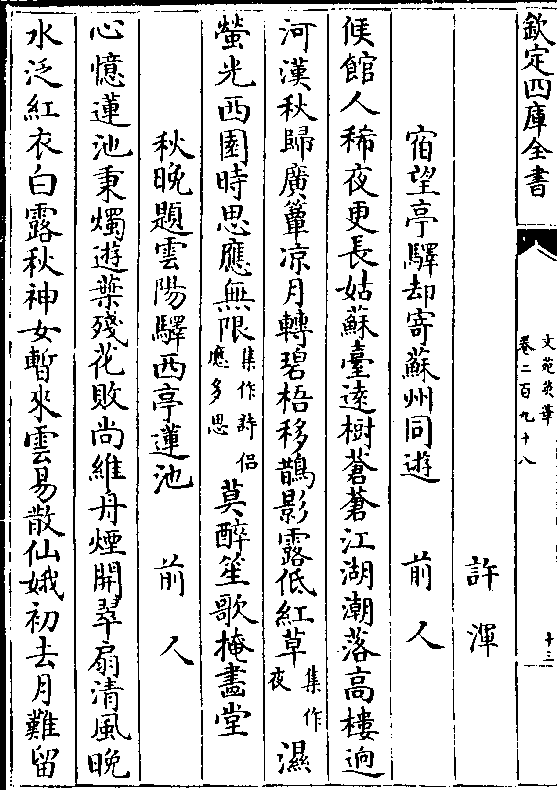 欽定四庫全書
文苑英華
卷二百九十八
十三
許渾
宿望亭驛却寄蘇州同遊
前人
候館人稀夜更長姑蘇臺遠樹蒼蒼江湖潮落高樓迥
河漢秋歸廣簟凉月轉碧梧移鵲影露低紅草集作夜濕
螢光西園時思應無限集作詩侣應多思莫醉笙歌掩畫堂
秋晚題雲陽驛西亭蓮池
前人
心憶蓮池秉燭遊葉殘花敗尚維舟煙開翠扇清風晚
水泛紅衣白露秋神女暫來雲易散仙娥初去月難留